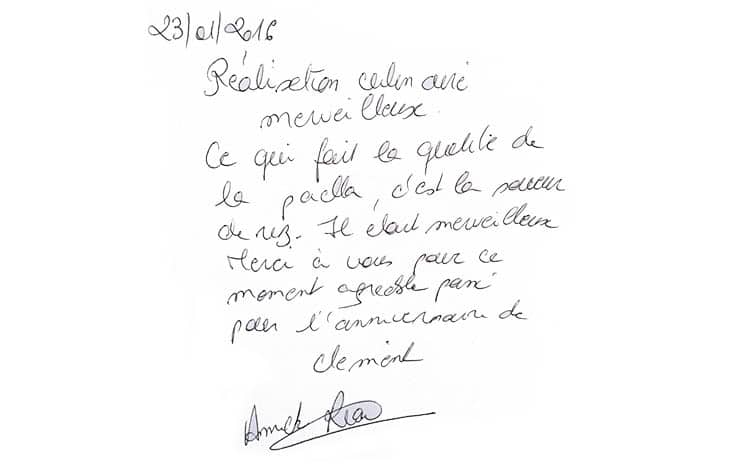 23/01/2016
Réalisation culinaire
merveilleux.
Ce qui fait la qualité de
la paella, c'est la saveur
de riz. Il était merveilleux
Merci à vous pour ce
moment agréable passé
pour l'anniversaire de
Clément
Annick